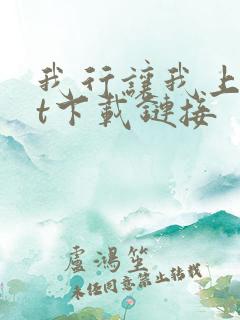 我行讓我上
t下載鏈接
盧鴻笙
未經同意禁止轉載